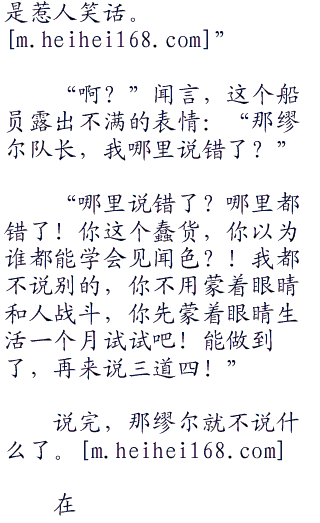 是惹人笑话。
[m.heihei168.com]”
“啊？”闻言，这个船
员露出不满的表情：“那缪
尔队长，我哪里说错了？”
“哪里说错了？哪里都
错了！你这个蠢货，你以为
谁都能学会见闻色？！我都
不说别的，你不用蒙着眼睛
和人战斗，你先蒙着眼睛生
活一个月试试吧！能做到
了，再来说三道四！”
说完，那缪尔就不说什
么了。[m.heihei168.com]
在